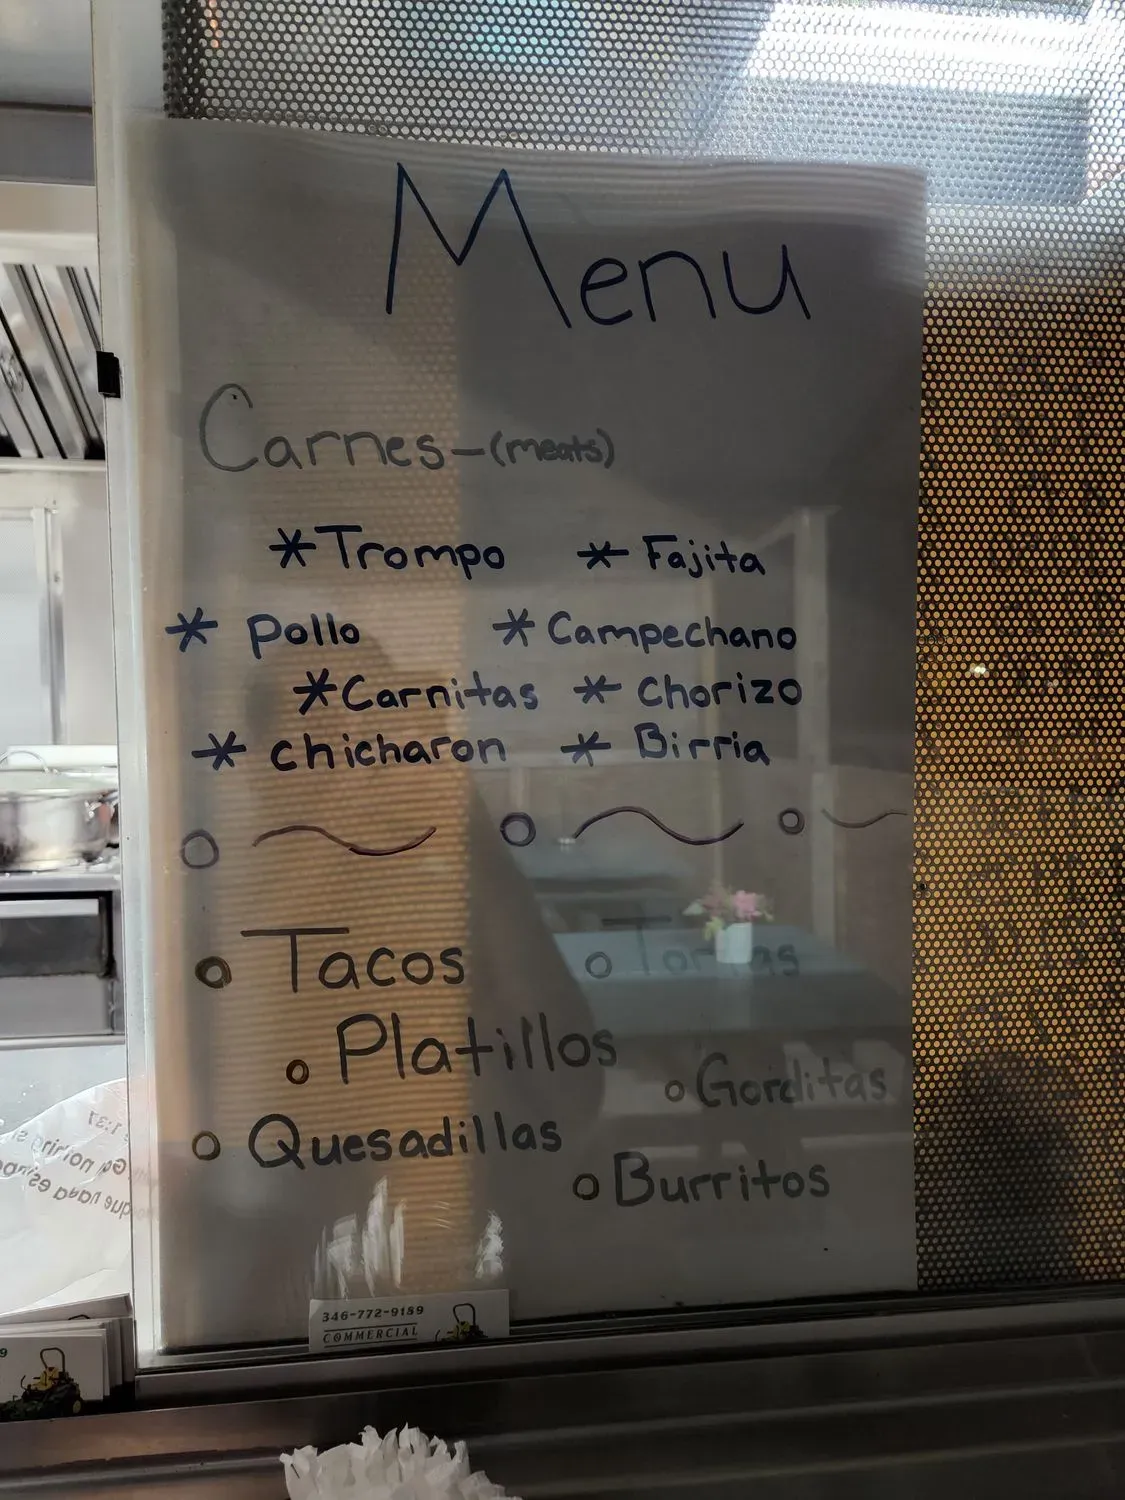 Menu
Carnes-(meats)
* Trompo * Fajita
* Pollo * Campechano
* Carnitas * Chorizo
* chicharon * Birria
Tacos Tortas
Platillos
Gorditas
Quesadillas
Burritos
346-772-9189
COMMERCIAL
9
1:37